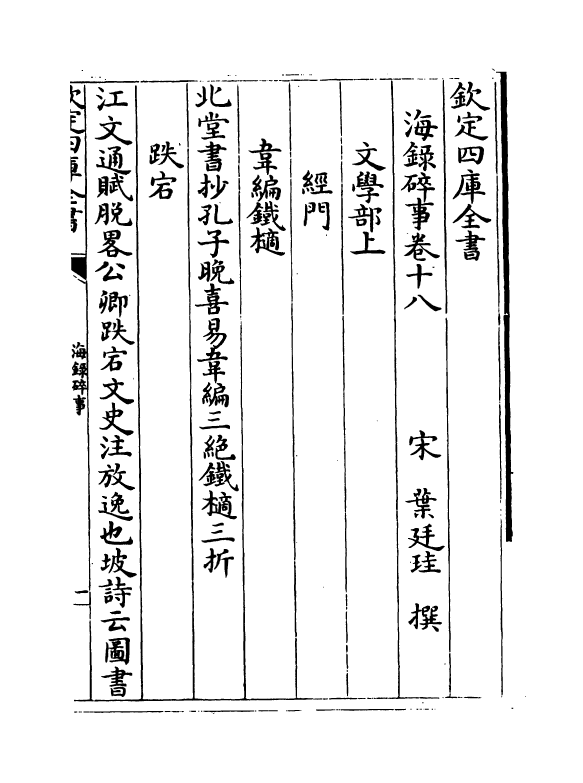 欽定四庫全書
海錄碎事卷十八 宋 葉廷珪 撰
文學部上
經門
韋編鐵樀
北堂書抄孔子晚喜易韋編三絕鐵樀三折
跌宕
江文通賦脱畧公卿跌宕文史注放逸也坡詩云圖書
欽定四庫全書
海錄碎事
二